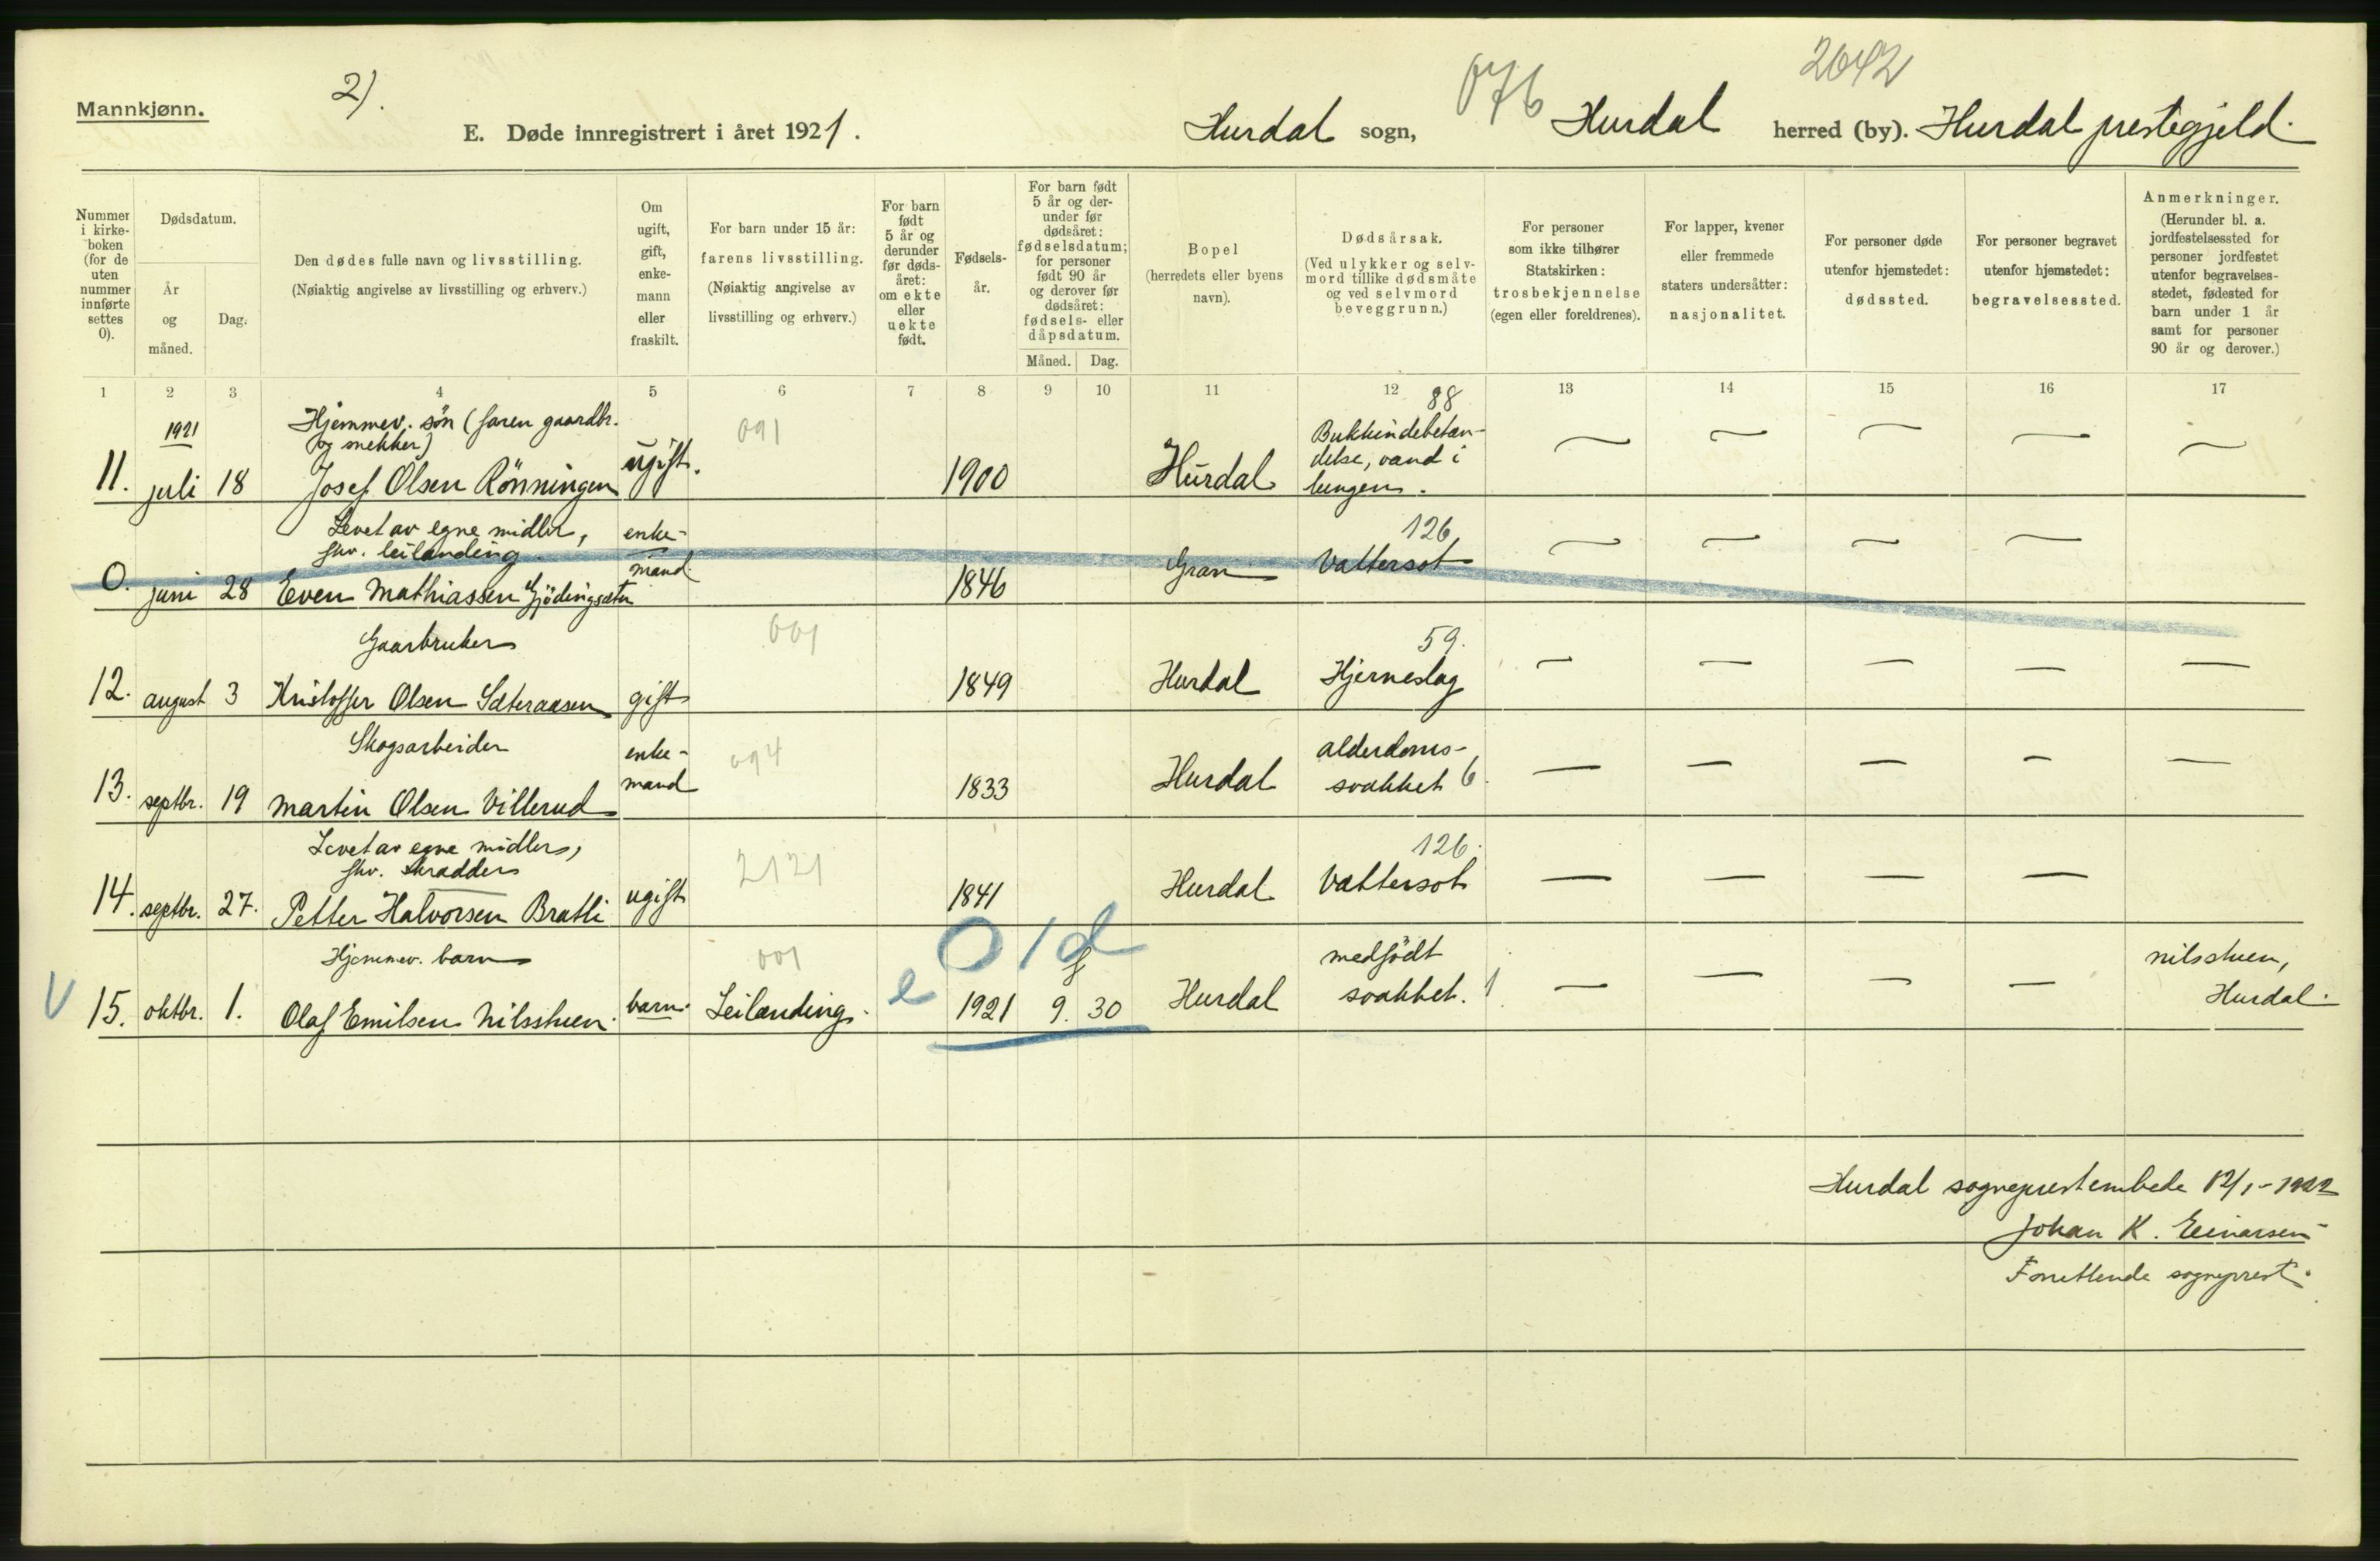 Mannkjønn.
2).
E. Døde innregistrert i året 1921.
Hurdal sogn,
076
Hurdal herred (by). Hurdal prestegjeld.
2642
Nummer i kirke-boken (for de uten nummer innførte settes 0).
Dødsdatum.
År og måned.
Dag.
Den dødes fulle navn og livsstilling.
(Nøiaktig angivelse av livsstilling og erhverv.)
Om ugift, gift, enke-mann eller fraskilt.
For barn under 15 år:
farens livsstilling.
(Nøiaktig angivelse av
livsstilling og erhverv.)
For barn født 5 år og derunder før døds-året: om ekte eller uekte født.
Fødsels-
år.
For barn født
5 år og der-
under før
dødsåret:
fødselsdatum;
for personer
født 90 år
og derover før
dødsåret:
fødsels- eller
dåpsdatum.
Måned. Dag.
Bopel
(herredets eller byens
navn).
Dødsårsak.
(Ved ulykker og selv-
mord tillike dødsmåte
og ved selvmord
beveggrunn.)
For personer
som ikke tilhører
Statskirken:
trosbekjennelse
(egen eller foreldrenes).
For lapper, kvener
eller fremmede
staters undersåtter:
nasjonalitet.
For personer døde
utenfor hjemstedet:
dødssted.
For personer begravet
utenfor hjemstedet:
begravelsessted.
Anmerkninger.
(Herunder bl. a.
jordfestelsessted for
personer jordfestet
utenfor begravelses-
stedet, fødested for
barn under 1 år
samt for personer
90 år og derover.)
1 2 3 4 5 6 7 8 9 10 11 12 13 14 15 16 17
1921
Hjemmev. søn (faren gaardbr.
og snekker)
091
88
Bukhindebetæn-
delse, vand i
lungen.
11. juli 18 Josef Olsen Rönningen ugift. 1900 Hurdal
Levet av egne midler,
fhv. leilænding
enke-
mand
126
0. juni 28 Even Mathiassen Gjödingsæter 1846 Gran Vattersot
Gaarbruker
001
59.
12. august 3 Kristoffer Olsen Sæteraasen gift 1849 Hurdal Hjerneslag
Skogsarbeider
enke-
mand
094
alderdoms-
svakhet 6.
13. septbr. 19 Martin Olsen Villerud 1833 Hurdal
Levet av egne midler,
fhv. skrædder
2121
126.
14. septbr. 27. Petter Halvorsen Bratli ugift 1841 Hurdal Vattersot
Hjemmev. barn
001
0 1 d
f
medfödt
svakhet. 1
Nilsstuen,
Hurdal.
V 15. oktbr. 1. Olaf Emilsen Nilsstuen. barn. Leilænding. e 1921 9. 30 Hurdal
Hurdal sogneprestembede 12/1-1922
Johan K. Einarsen
Forrettende sogneprest.